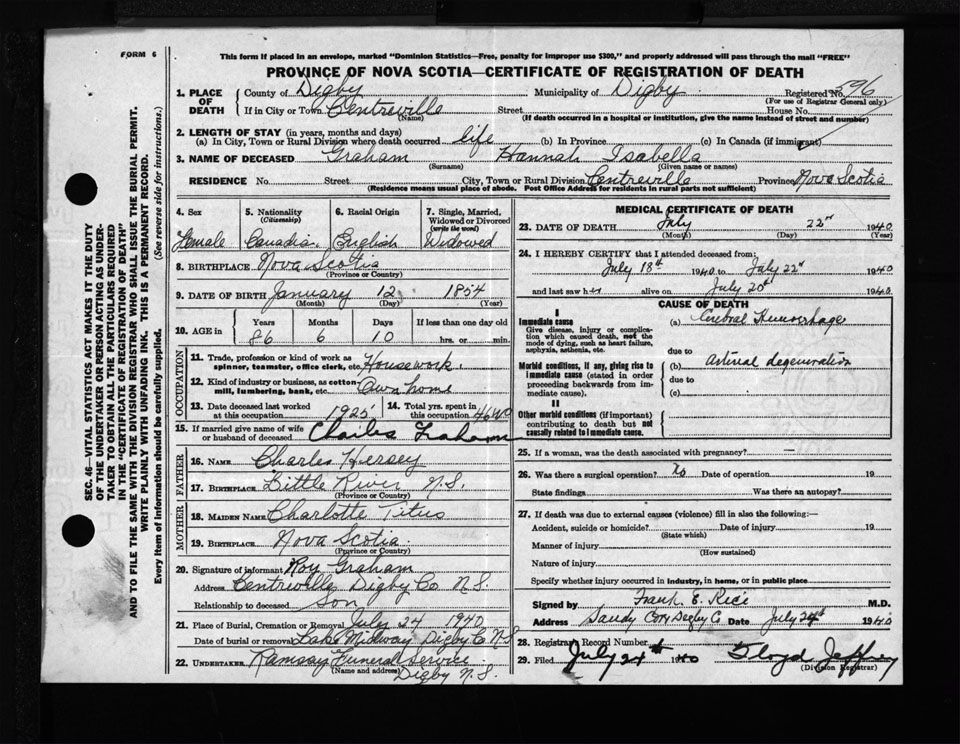 FORM 6
This form if placed in an envelope, marked "Dominion Statistics—Free, penalty for improper use $300," and properly addressed will pass through the mail "FREE"
PROVINCE OF NOVA SCOTIA—CERTIFICATE OF REGISTRATION OF DEATH
1. PLACE OF DEATH
County of Digby Municipality of Digby Registered No. 596
(For use of Registrar General only)
If in City or Town Centreville Street House No.
(Name) (If death occurred in a hospital or institution, give the name instead of street and number)
2. LENGTH OF STAY (in years, months and days)
(a) In City, Town or Rural Division where death occurred life (b) In Province (c) In Canada (if immigrant)
3. NAME OF DECEASED Graham Hannah Isabella
(Surname) (Given name or names)
RESIDENCE No. Street City, Town or Rural Division Centreville Province Nova Scotia
(Residence means usual place of abode. Post Office Address for residents in rural parts not sufficient)
4. Sex 5. Nationality (Citizenship) 6. Racial Origin 7. Single, Married, Widowed or Divorced (write the word)
Female Canadia. English Widowed
8. BIRTHPLACE Nova Scotia
(Province or Country)
9. DATE OF BIRTH January 12 1854
(Month) (Day) (Year)
10. AGE in Years Months Days If less than one day old
86 6 10 hrs. or min.
OCCUPATION
11. Trade, profession or kind of work as spinner, teamster, office clerk, etc. Housework.
12. Kind of industry or business, as cotton mill, lumbering, bank, etc. Own home
13. Date deceased last worked at this occupation 1925 14. Total yrs. spent in this occupation
15. If married give name of wife or husband of deceased Charles Graham
FATHER
16. NAME Charles Hersey
17. BIRTHPLACE Little River N.S.
(Province or Country)
MOTHER
18. MAIDEN NAME Charlotte Titus
19. BIRTHPLACE Nova Scotia.
(Province or Country)
20. Signature of informant Roy Graham
Address Centreville Digby Co N.S.
Relationship to deceased Son
21. Place of Burial, Cremation or Removal July 24 1940
Date of burial or removal Lake Midway Digby Co N.S
22. UNDERTAKER Ramsay Funeral Service
(Name and address) Digby N.S.
MEDICAL CERTIFICATE OF DEATH
23. DATE OF DEATH July 22nd 1940
(Month) (Day) (Year)
24. I HEREBY CERTIFY that I attended deceased from:
July 18th 1940 to July 22nd 1940
and last saw her alive on July 20th 1940
CAUSE OF DEATH
I
Immediate cause (a) Cerebral Hemorrhage
Give disease, injury or complication which caused death, not the mode of dying, such as heart failure, asphyxia, asthenia, etc.
due to
Morbid conditions, if any, giving rise to immediate cause (stated in order proceeding backwards from immediate cause). (b) arterial degeneration
due to
(c)
II
Other morbid conditions (if important) contributing to death but not causally related to immediate cause.
25. If a woman, was the death associated with pregnancy? —
26. Was there a surgical operation? No Date of operation 19
State findings Was there an autopsy?
27. If death was due to external causes (violence) fill in also the following:—
Accident, suicide or homicide? Date of injury 19
(State which)
Manner of injury
(How sustained)
Nature of injury
Specify whether injury occurred in industry, in home, or in public place
Signed by Frank E. Rice M.D.
Address Sandy Cove Digby Co Date July 24th 1940
28. Registrar's Record Number
29. Filed July 24th 1940 Floyd Jeffrey
(Division Registrar)
SEC. 46—VITAL STATISTICS ACT MAKES IT THE DUTY
OF THE UNDERTAKER OR PERSON ACTING AS UNDERTAKER
TO OBTAIN ALL THE PARTICULARS REQUIRED
IN THE "CERTIFICATE OF REGISTRATION OF DEATH"
AND TO FILE THE SAME WITH THE DIVISION REGISTRAR WHO SHALL ISSUE THE BURIAL PERMIT.
WRITE PLAINLY WITH UNFADING INK. THIS IS A PERMANENT RECORD.
Every item of information should be carefully supplied. (See reverse side for instructions.)